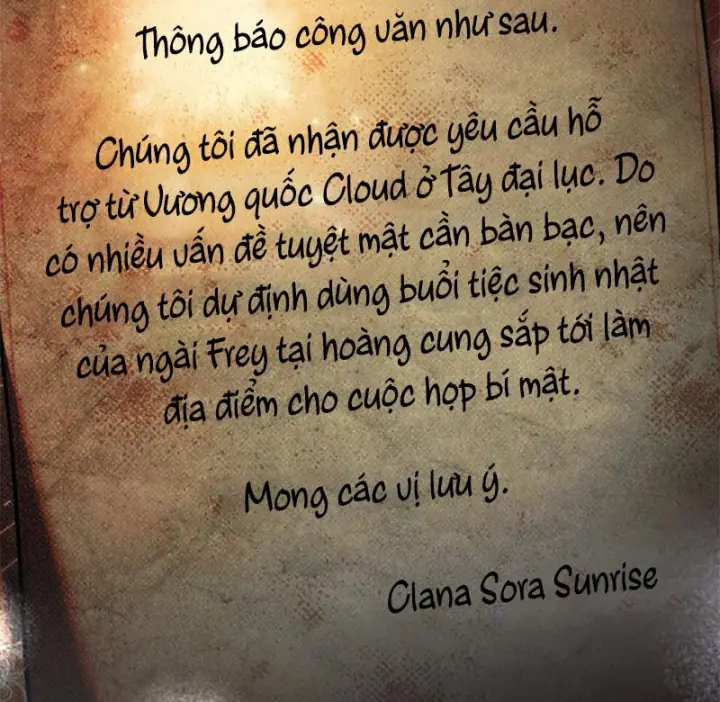 Thông báo công văn như sau.
Chúng tôi đã nhận được yêu cầu hỗ
trợ từ Vương quốc Cloud ở Tây đại lục. Do
có nhiều vấn đề tuyệt mật cần bàn bạc, nên
chúng tôi dự định dùng buổi tiệc sinh nhật
của ngài Frey tại hoàng cung sắp tới làm
địa điểm cho cuộc họp bí mật.
Mong các vị lưu ý.
Clana Sora Sunrise